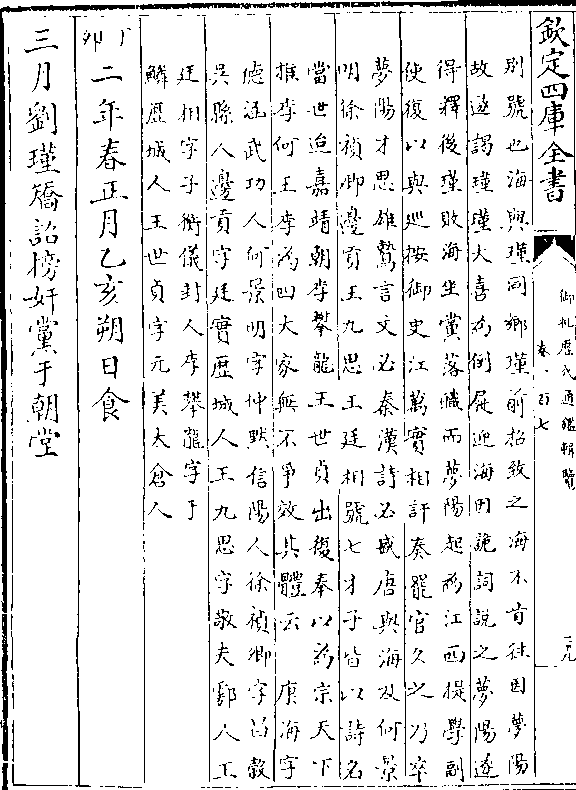 欽定四庫全書
御批歷代通鑑輯覽
卷一百七
別號也海與瑾同鄉瑾前招致之海不肯往因夢陽
故遂謁瑾瑾大喜為倒屣迎海因詭詞說之夢陽遂
得釋後瑾敗海坐黨落職而夢陽起為江西提學副
使復以與巡按御史江萬實相訐奏罷官久之乃卒
夢陽才思雄鷙言文必秦漢詩必盛唐與海及何景
明徐禎卿邊貢王九思王廷相號七才子皆以詩名
當世迨嘉靖朝李攀龍王世貞出復奉以為宗天下
推李何王李為四大家無不爭效其體云 康海字
德涵武功人何景明字仲默信陽人徐禎卿字昌穀
吳縣人邊貢字廷實歷城人王九思字敬夫鄠人王
廷相字子衡儀封人李攀龍字于
鱗歷城人王世貞字元美太倉人
丁卯
二年春正月乙亥朔日食
三月劉瑾矯詔榜奸黨于朝堂